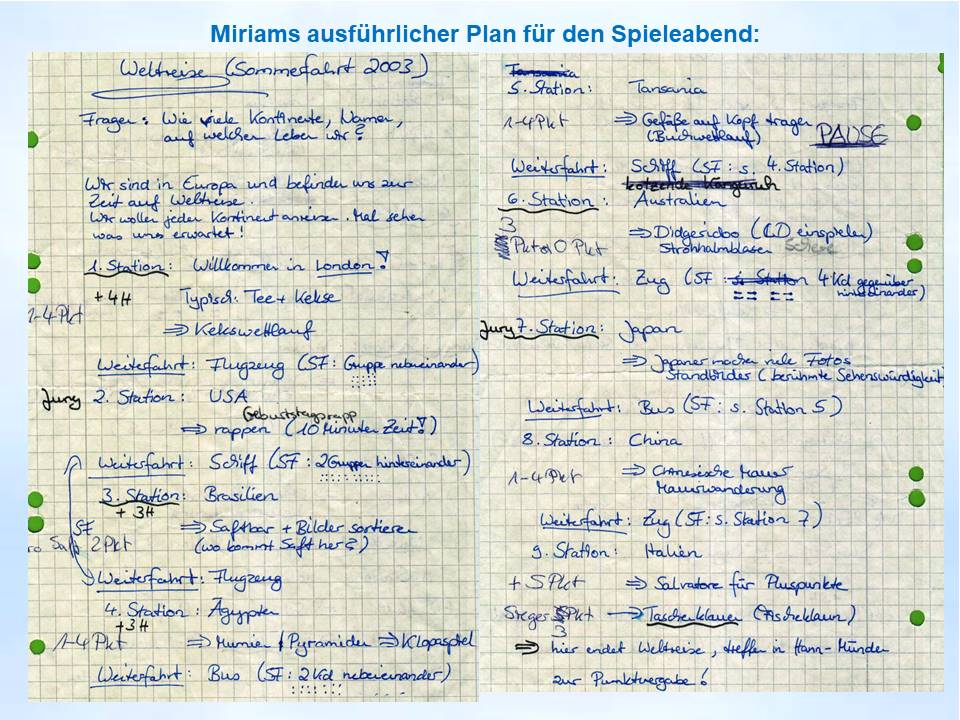 Miriams ausführlicher Plan für den Spieleabend:
Weltreise (Sommerfahrt 2003)
Fragen: Wie viele Kontinente, Namen,
auf welchen Leben wir?
Wir sind in Europa und befinden uns zur
Zeit auf Weltreise.
Wir wollen jeden Kontinent anreisen. Mal sehen
was uns erwartet!
1. Station: Willkommen in London!
+ 4H Typisch: Tee + Kekse
1-4 Pkt
⇒ Kekswettlauf
Weiterfahrt: Flugzeug (SF: Gruppe nebeneinander)
Jury 2. Station: USA
Geburtstagsrapp
⇒ rappen (10 Minuten Zeit!)
Weiterfahrt: Schiff (SF: 2 Gruppen hintereinander)
3. Station: Brasilien
+ 3H
SF ⇒ Saftbar + Bilder sortieren
pro Saft 2Pkt (wo kommt Saft her?)
Weiterfahrt: Flugzeug
4. Station: Ägypten
+3H
1-4 Pkt ⇒ Mumien / Pyramiden ⇒ Klopaspiel
Weiterfahrt: Bus (SF: 2 Kd nebeneinander)
Tansania
5. Station: Tansania
1-4 Pkt ⇒ Gefäße auf Kopf tragen
(Buchwettlauf) PAUSE
Weiterfahrt: Schiff (SF: s. 4. Station)
6. Station: Australien
3 Pkt od 0 Pkt ⇒ Didgeridoo (CD einspielen)
Strohhalmblasen
Weiterfahrt: Zug (SF: 4 Kd gegenüber
hintereinander)
Jury 7. Station: Japan
⇒ Japaner machen viele Fotos
Standbilder (berühmte Sehenswürdigkeit
Weiterfahrt: Bus (SF: s. Station 5)
8. Station: China
1-4 Pkt ⇒ Chinesische Mauer
Mauerwanderung
Weiterfahrt: Zug (SF: s. Station 7)
9. Station: Italien
+ 5 Pkt ⇒ Salvatore für Pluspunkte
Sieger 3 Pkt → Taschenklauer (Tascheklaun)
⇒ hier endet Weltreise, treffen in Hann-Münden
zur Punktvergabe!